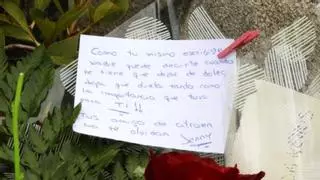 Como tu mismo escribiste
nadie puede decirte cuando
te tiene que dejar de doler,
deja que duela tanto como
la importancia que tuvo
para TI !!
Tus amigos de citroen
no te olvidan Jenny